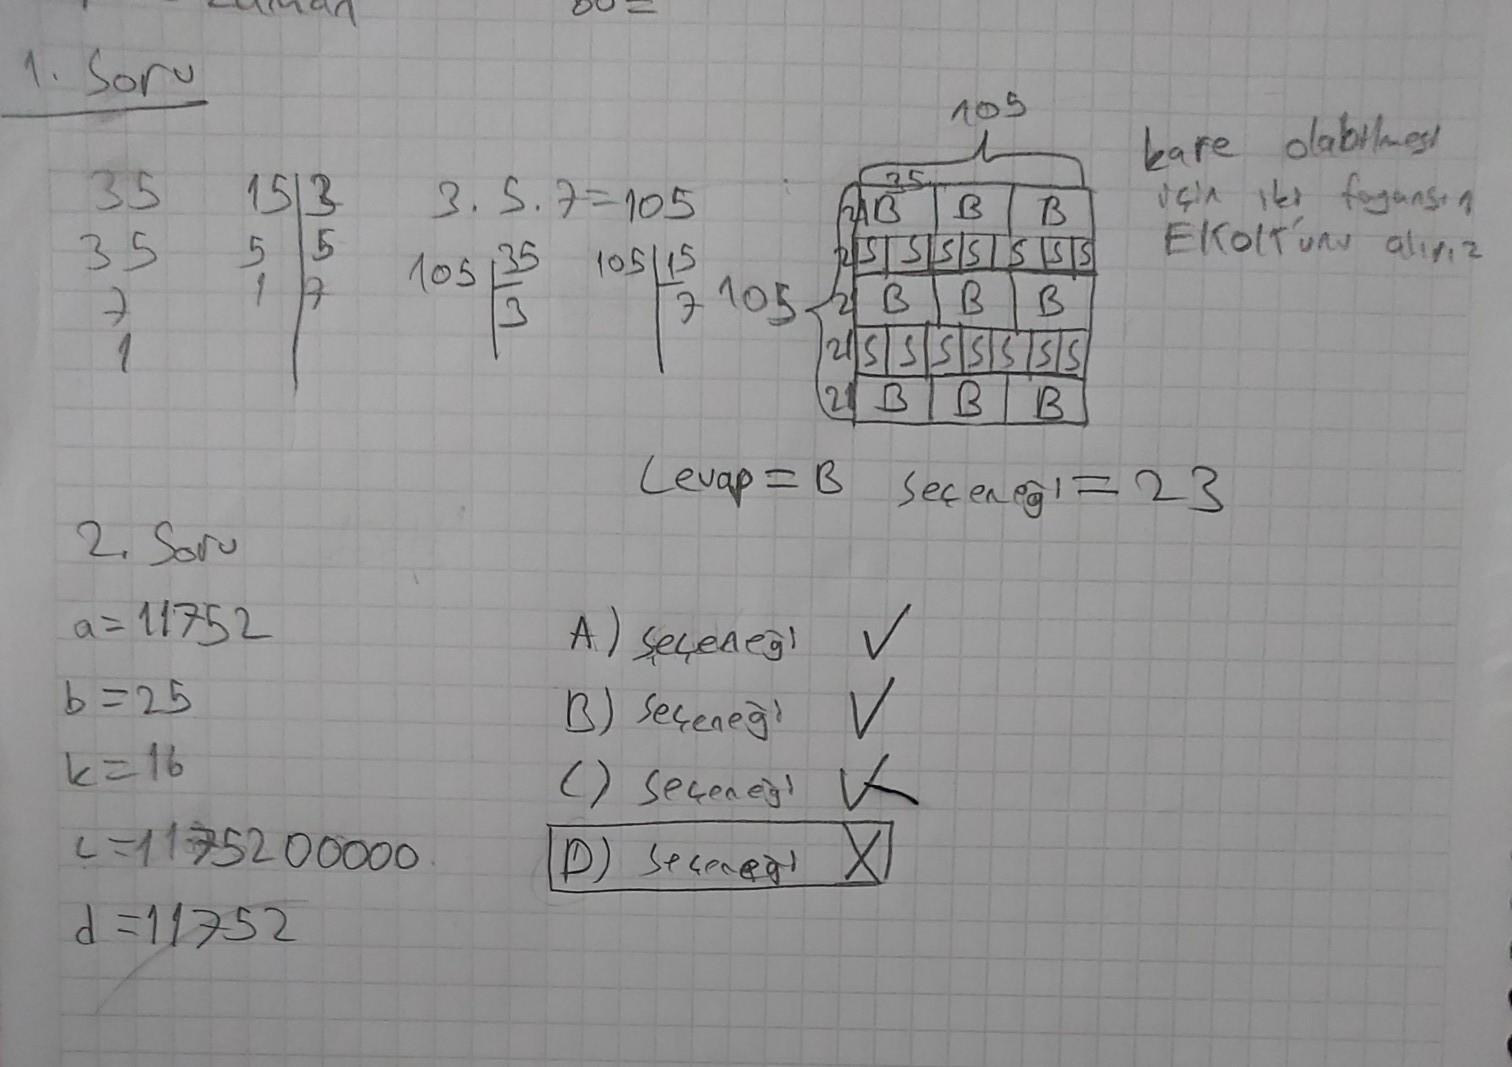 zaman 80=
1. Soru
105
kare olabilmesi
için iki fayansın
EKOK'unu alırız
35 15 3 3.5.7=105
35 5 5
7 1 7
1
105 35
3
105 15
7
105
35
21 B B B
21 S S S S S S S
21 B B B
21 S S S S S S S
21 B B B
Cevap = B seçeneği = 23
2. Soru
a=11752
b=25
k=16
c=1175200000
d=11752
A) seçeneği ✓
B) seçeneği ✓
C) seçeneği ✓
D) seçeneği X